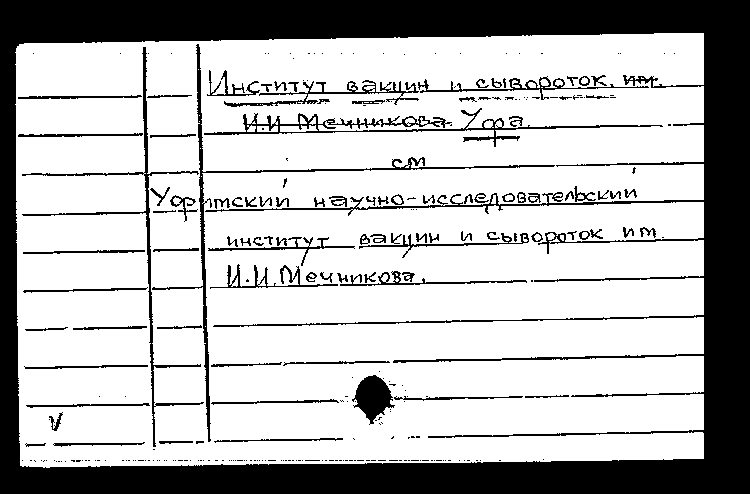 Институт вакцин и сывороток. им.
И.И Мечникова Уфа.
см
Уфимский научно-исследовательский
институт вакцин и сывороток им.
И.И. Мечникова.
V